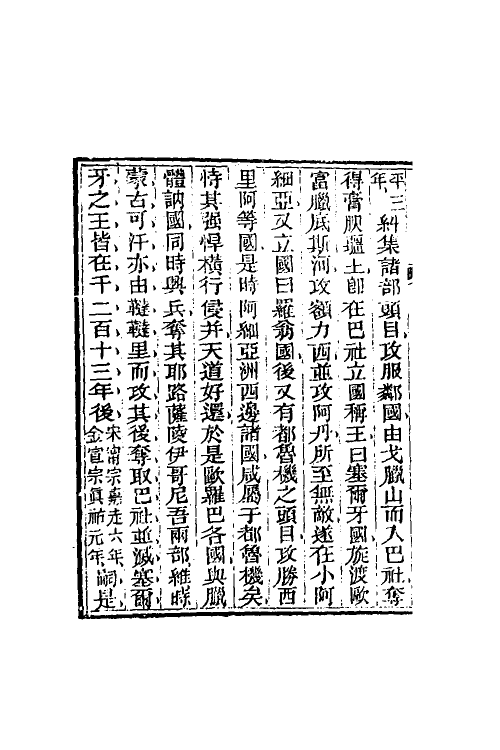 平三年糾集諸部頭目攻服鄰國由戈臘山而入巴社奪
得膏腴壃土卽在巴社立國稱王曰塞爾牙國旋渡歐
富臘底斯河攻額力西並攻阿丹所至無敵遂在小阿
細亞又立國曰羅翁國後又有都魯機之頭目攻勝西
里阿等國是時阿細亞洲西邊諸國咸屬于都魯機矣
恃其强悍橫行侵并天道好還於是歐羅巴各國與臘
體訥國同時興兵奪其耶路薩陵伊哥尼吾兩部維時
蒙古可汗亦由韃韃里而攻其後奪取巴社並滅塞爾
牙之王皆在千二百十三年後宋甯宗嘉定六年金宣宗眞祐元年嗣是